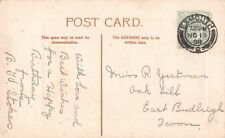 POST CARD.
This space may be used for
communication.
The ADDRESS only to be
written here.
With love and
Best Wishes
for a Happy
Birthday
from
B. W. Stokes.
EXMOUTH
NO 13
09
Miss R. Yeatman
Oak Hill
East Budleigh
Devon